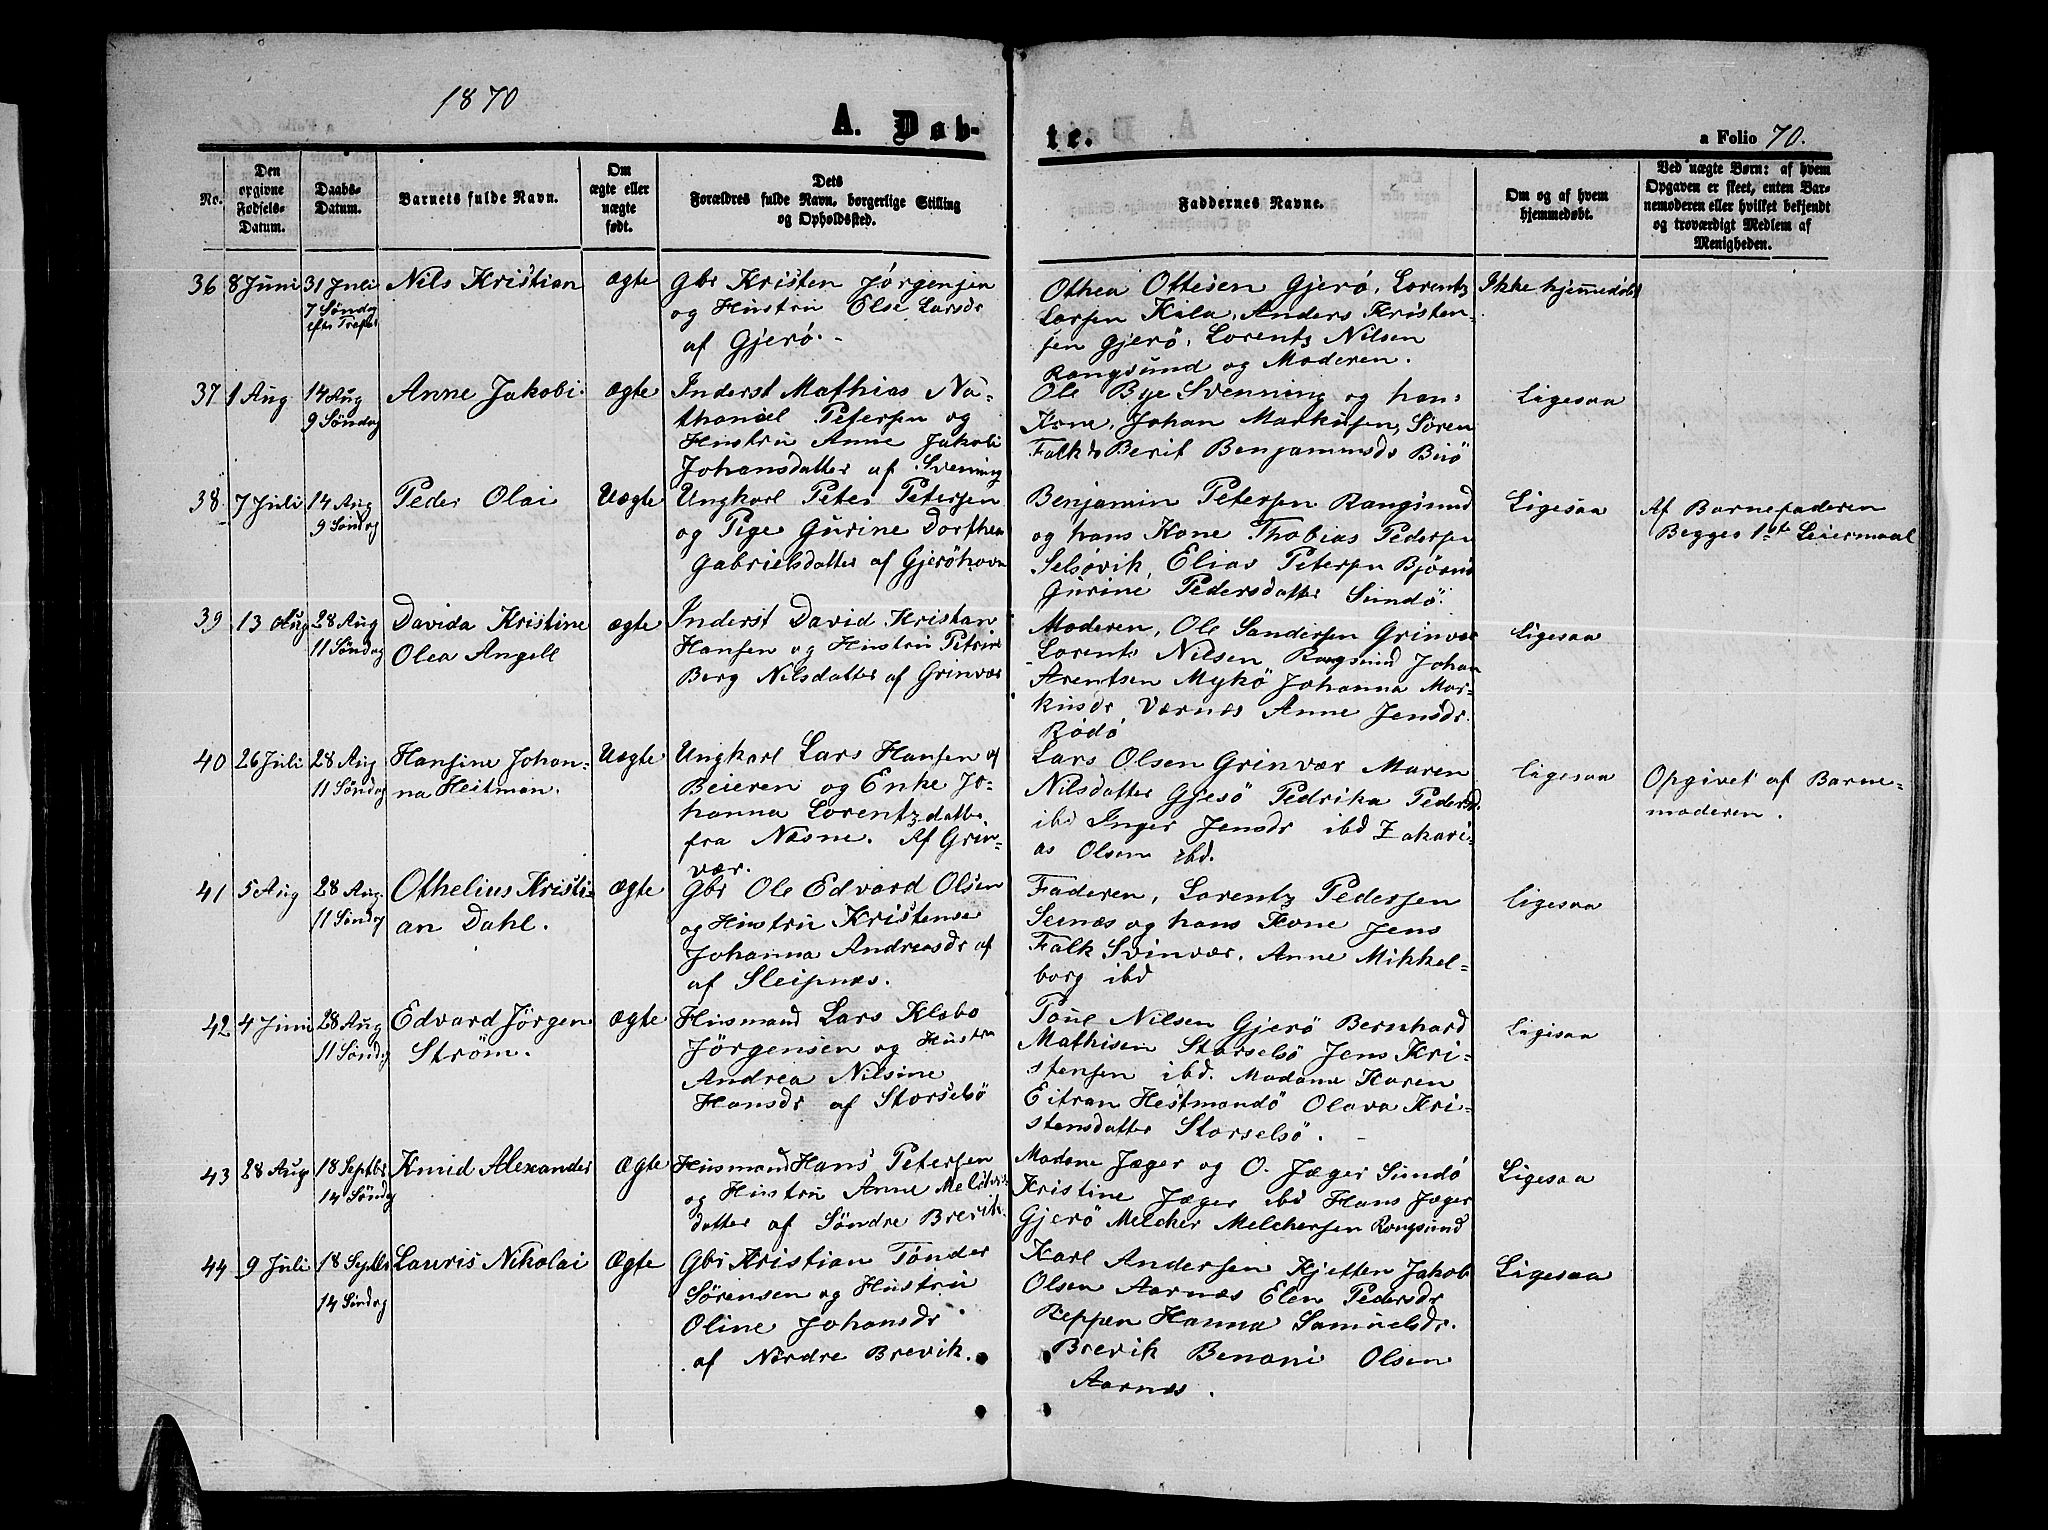 1870
A. Døb-
te.
a Folio 70.
No.
Den
opgivne
Fødsels-
Datum.
Daabs-
Datum.
Barnets fulde Navn.
Om
ægte eller
uægte
født.
Dets
Forældres fulde Navn, borgerlige Stilling
og Opholdssted.
Faddernes Navne.
Om og af hvem
hjemmedøbt.
Ved uægte Børn: af hvem
Opgaven er skeet, enten Bar-
nemoderen eller hvilket bekjendt
og troværdigt Medlem af
Menigheden.
36
8 Juni
31 Juli
7 Søndag
efter Trefol
Nils Kristian
ægte
Gbr Kristen Jørgensen
og Hustru Else Larsdr
af Gjerø.
Othea Ottesen Gjerø, Lorentz
Larsen Kila, Anders Kristen-
sen Gjerö, Lorentz Nilsen
Rangsund og Moderen.
Ikke hjemmedøbt
37
1 Aug
14 Aug
9 Søndag
Anne Jakobi
ægte
Inderst Mathias Na-
thanael Petersen og
Hustru Anne Jakobi
Johansdatter af Svenning
Ole Bye Svenning og hans
Kone, Johan Markusen, Søren
Falk & Berit Benjaminsdr Buö
Ligesaa
38
7 Juli
14 Aug
9 Søndag
Peder Olai
Uægte
Ungkarl Peter Petersen
og Pige Gurine Dorthea
Gabrielsdatter af Gjerøhavn
Benjamin Petersen Rangsund
og hans Kone Thobias Pedersen
Selsøvik, Elias Petersen
Gurine Pedersdatter Sundö.
Ligesaa
Af Barnefaderen
Begges 1ste Leiermaal
39
13 Aug
28 Aug
11 Søndag
Davida Kristine
Olea Angell
ægte
Inderst David Kristan
Hansen og Hustru Petrine
Berg Nilsdatter af Grinvær
Moderen, Ole Sandersen Grinvær
Lorents Nilsen Rangsund Johan
Arentsen Mykö Johanna Mar-
kusdr Værnæs Anne Jensdr.
Rödö
Ligesaa
40
26 Juli
28 Aug
11 Søndag
Hansine Johan-
na Heitman.
Uægte
Ungkarl Lars Hansen af
Beieren og Enke Jo-
hanna Lorentzdatter
fra Næsne. Af Grin-
vær.
Lars Olsen Grinvær Maren
Nilsdatter Gjesö Pedrika Pedersd.
ibd Inger Jensdr ibd Zakari-
as Olsen ibd.
Ligesaa
Opgivet af Barne-
moderen.
41
5 Aug
28 Aug
11 Søndag
Othelius Kristi-
an Dahl.
Ægte
Gbr Ole Edvard Olsen
og Hustru Kristense
Johanna Andreasdr af
af Sleipnæs.
Faderen, Lorentz Pedersen
Selnæs og hans Kone Jens
Falk Svinvær. Anne Mikkel-
borg ibd
Ligesaa
42
4 Juni
28 Aug
11 Søndag
Edvard Jörgen
Strøm.
Ægte
Husmand Lars Klæbo
Jørgensen og Hustru
Andrea Nilsine
Hansdr af Storselsö
Poul Nilsen Gjerø Bernhard
Mathisen Storselsö Jens Kri-
stensen ibd. Madame Karen
Eitran Hestmandö Olava Kri-
stensdatter Storselsö.
Ligesaa
43
28 Aug
18 Septbr
14 Søndag
Knud Alexander
Ægte
Husmand Hans Petersen
og Hustru Anne
datter af Søndre Brevik.
Madame Jæger og O. Jæger Sundö
Kristine Jæger ibd Hans Jæger
Gjerö Melcher Melchersen Rangsund
Ligesaa
44
9 Juli
18 Septbr
14 Søndag
Lauris Nikolai
Ægte
Gbr Kristian Tønder
Sørensen og Hustru
Oline Johansdr
af Nordre Brevik.
Karl Andersen Kjetten Jakob
Olsen Aarnæs Elen Pedersdr
Reppen Hanna Samuelsdr.
Brevik Benoni Olsen
Aarnæs.
Ligesaa